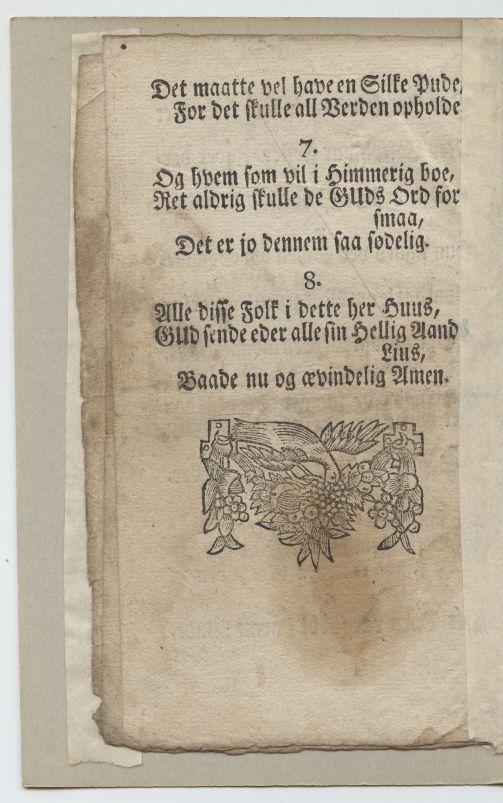 Det maatte vel have en Silke Pude,
For det skulle all Verden opholde
7.
Og hvem som vil i Himmerig boe,
Ret aldrig skulle de GUds Ord for
smaa,
Det er jo dennem saa sødelig.
8.
Alle disse Folk i dette her Huus,
GUd sende eder alle sin Hellig Aand
Lius,
Baade nu og ævindelig Amen.